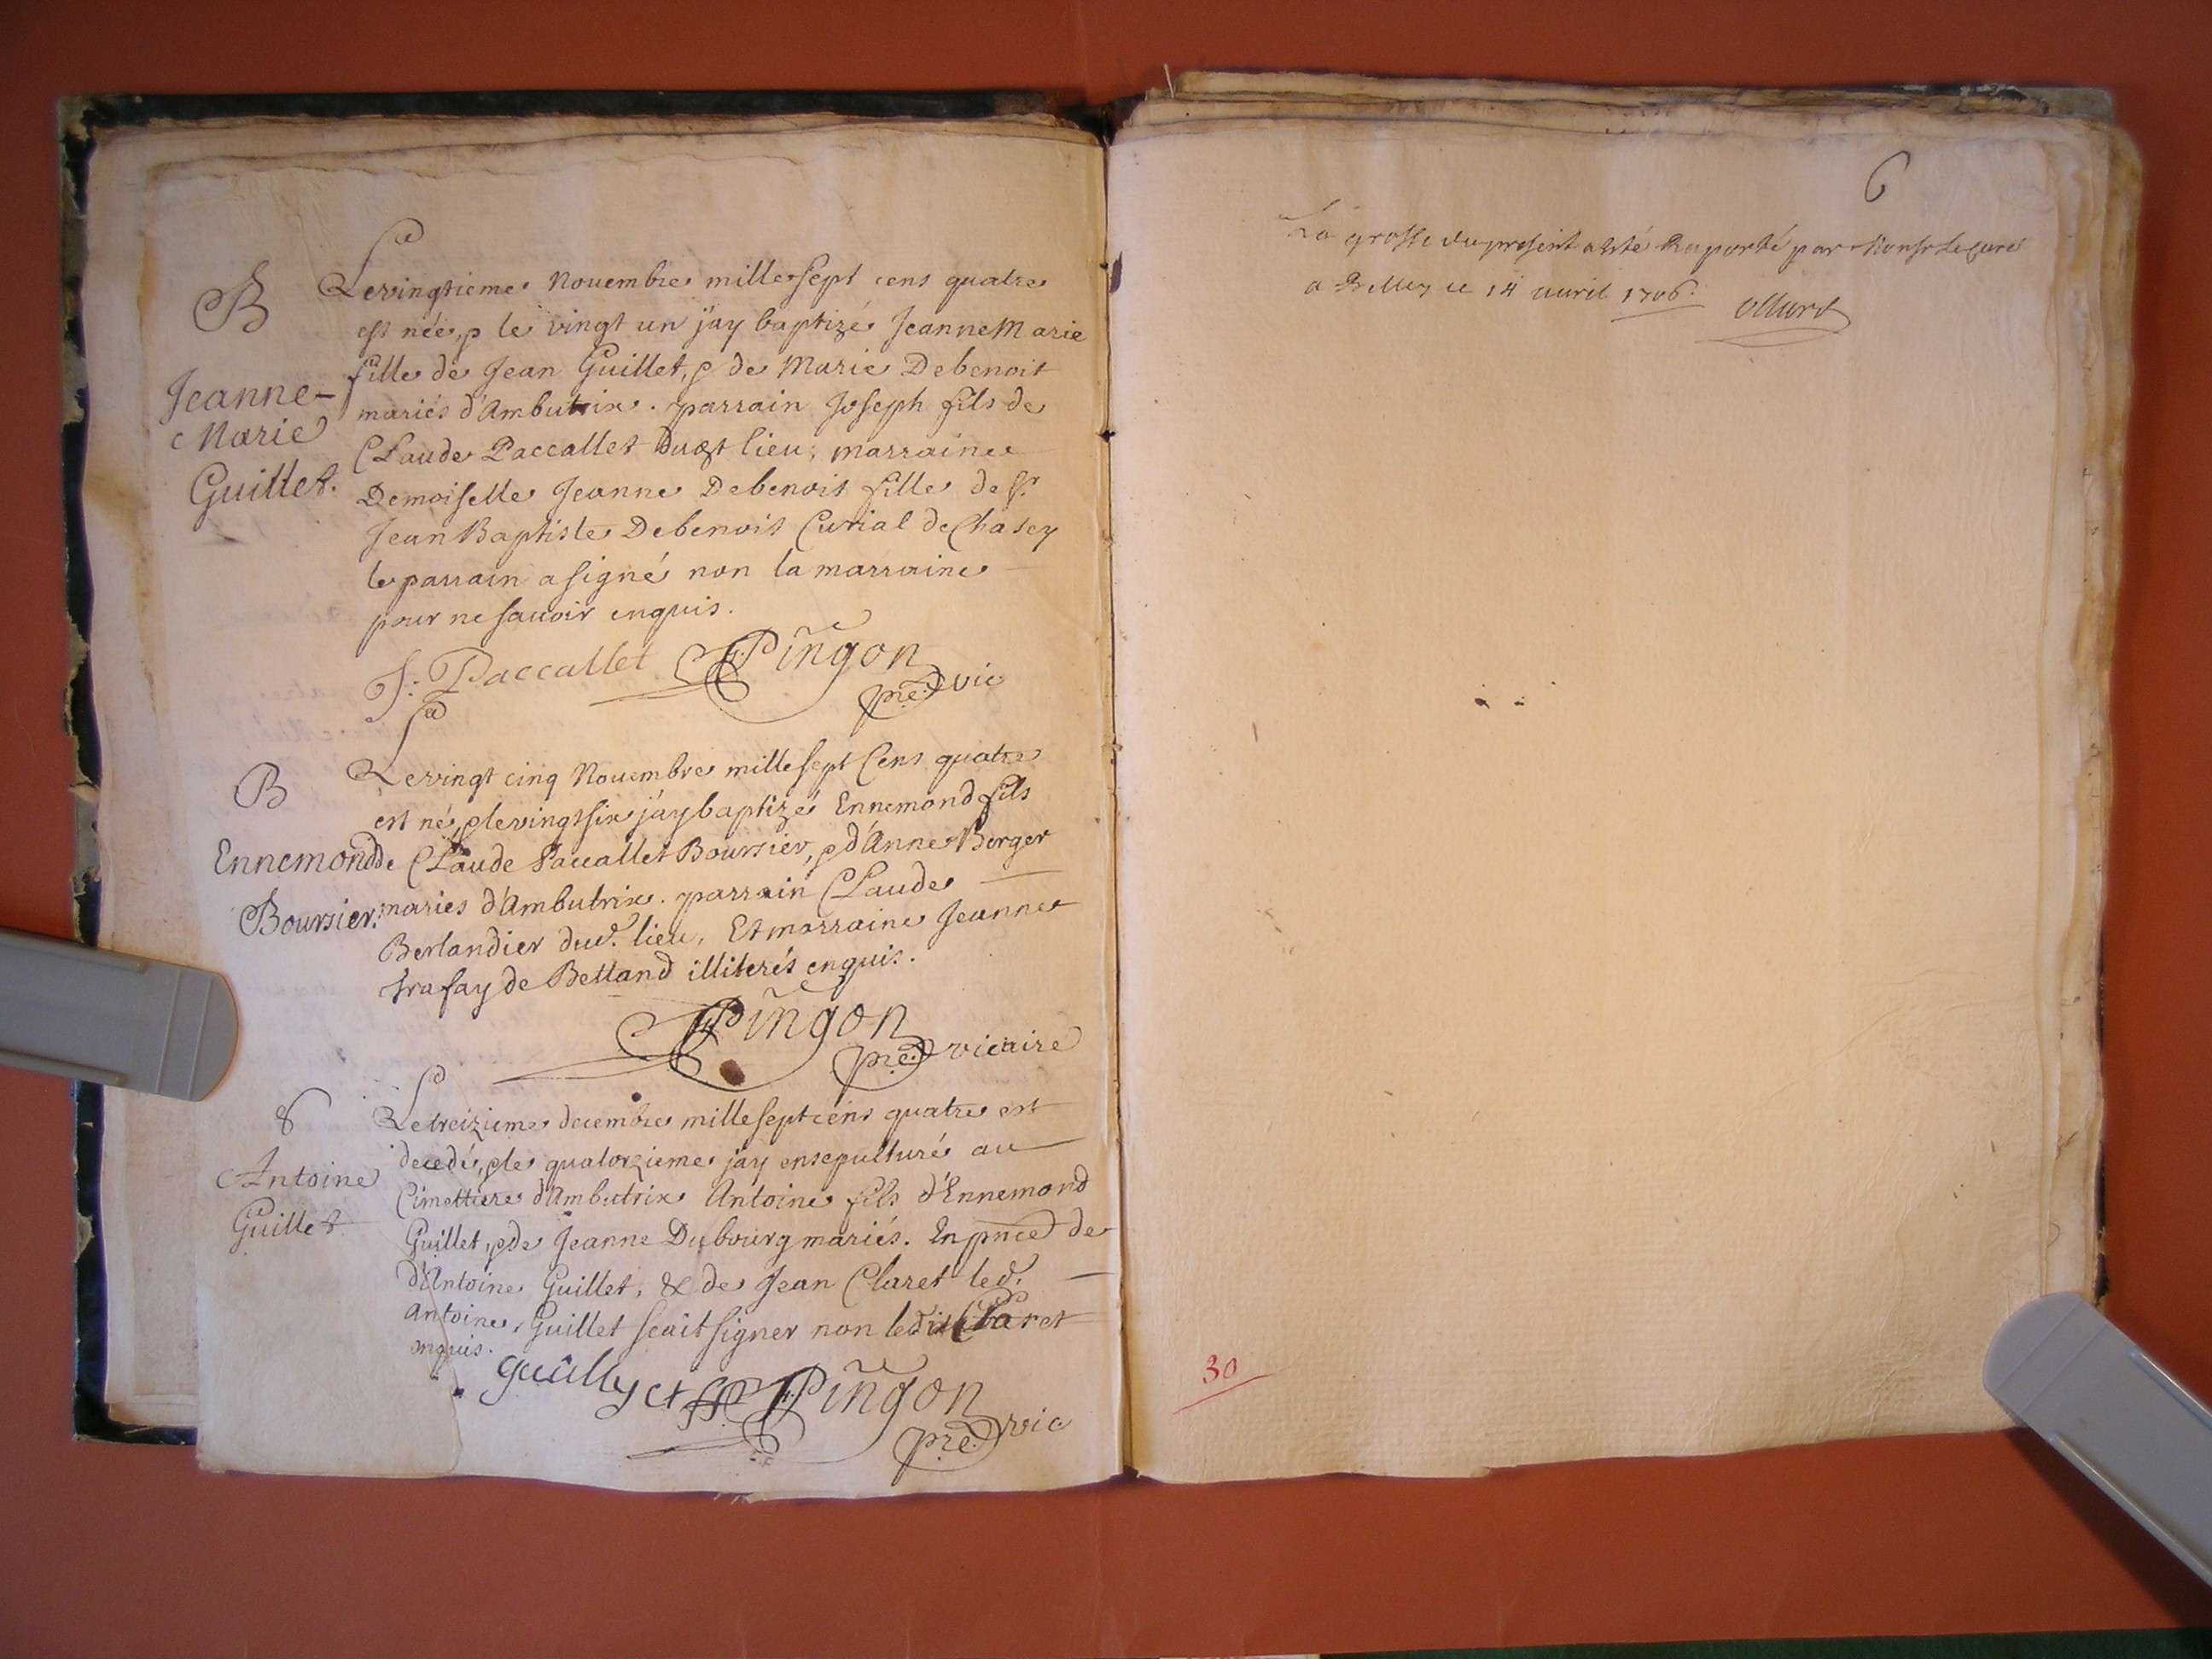 B
Jeanne-
Marie
Guillet.
Le vingtieme Nouembre mille sept cens quatre
est née, & le vingt un j'ay baptizé Jeanne Marie
fille de Jean Guillet, & de Marie Debenoit
mariés d'Ambutrix. parrain Joseph fils de
Claude Paccallet dudt lieu; marraine
Demoiselle Jeanne Debenoit fille de Sr
Jean Baptiste Debenoit Curial de Chasey
le parrain a signé non la marraine
pour ne sauoir enquis.
J: Paccallet Pingon
pre vic
B
Ennemond
Boursier.
Le vingt cinq Nouembre mille sept Cens quatre
est né, & le vingt six j'ay baptizé Ennemond fils
de Claude Paccallet Boursier, & d'Anne Berger
mariés d'Ambutrix. parrain Claude
Berlandier dud. lieu, Et marraine Jeanne
trafay de Betland illiterés enquis.
Pingon
pre vicaire
8
Antoine
Guillet
Le treizieme decembre mille sept cens quatre est
decedé, & le quatorzieme j'ay ensepulturé au
Cimettiere d'Ambutrix Antoine fils d'Ennemond
Guillet, & de Jeanne Dubourg mariés. En pnce de
d'Antoine Guillet, & de Jean Claret led.
Antoine Guillet scait signer non ledit Claret
enquis.
Pingon
pre vic
6
La grosse du present a esté Raporté par Monsr Le curé
a Belley ce 14 auril 1706.
30